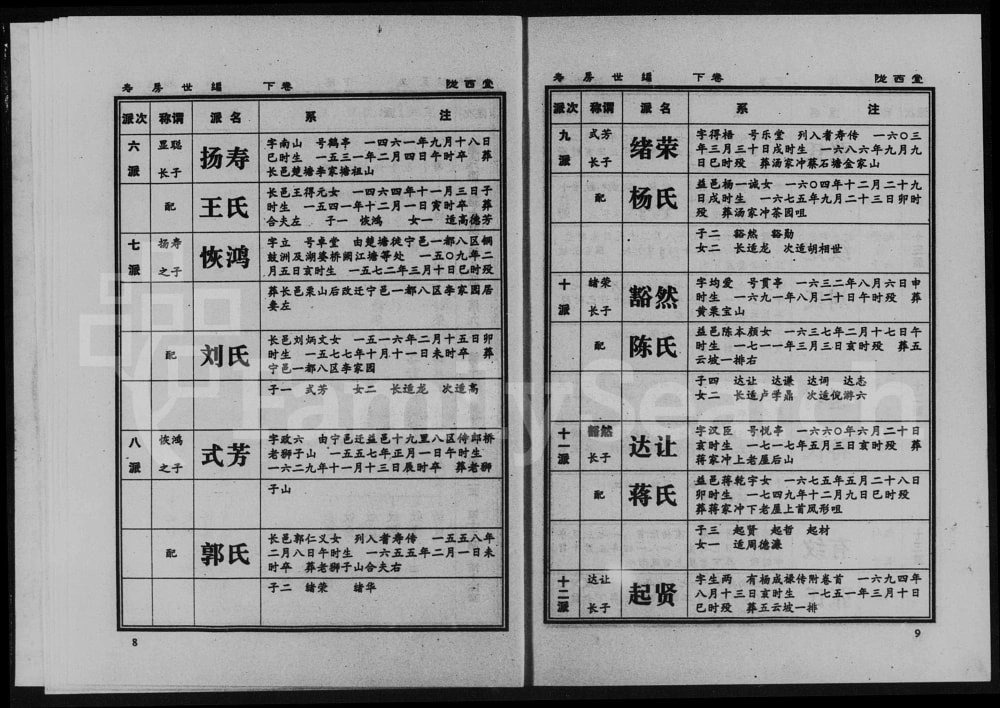 寿房世编 下卷 陇西堂
派次 称谓 派名 系 注
六派 显聪长子 扬寿 字南山 号鹤亭 一四六一年九月十八日
巳时生 一五三一年二月四日午时卒 葬
长邑楚塘李家塘祖山
配 王氏 长邑王得元女 一四六四年十一月三日子
时生 一五四一年十二月一日寅时卒 葬
合夫左 子一 恢鸿 女一 适高德芳
七派 扬寿之子 恢鸿 字立 号卓堂 由楚塘徙宁邑一都八区铜
鼓洲及湖婆桥阙江塘等处 一五〇九年二
月五日亥时生 一五七二年三月十日巳时殁
葬长邑栗山后改迁宁邑一都八区李家园居
妻左
配 刘氏 长邑刘炳文女 一五一六年二月十五日卯
时生 一五七七年十月十一日未时卒 葬
宁邑一都八区李家园
子一 式芳 女二 长适龙 次适高
八派 恢鸿之子 式芳 字政六 由宁邑迁益邑十九里八区传郎桥
老狮子山 一五五七年正月一日午时生
一六二九年十一月十三日辰时卒 葬老狮
子山
配 郭氏 长邑郭仁义女 列入耆寿传 一五五八年
二月八日午时生 一六五五年二月一日未
时卒 葬老狮子山合夫右
子二 绪荣 绪华
8
寿房世编 下卷 陇西堂
派次 称谓 派名 系 注
九派 式芳长子 绪荣 字得梧 号乐堂 列入耆寿传 一六〇三
年三月三十日戌时生 一六八六年九月九
日巳时殁 葬汤家冲蔡石塘金家山
配 杨氏 益邑杨一诚女 一六〇四年十二月二十九
日戌时生 一六七五年九月二十三日卯时
殁 葬汤家冲茶园咀
子二 豁然 豁勋
女二 长适龙 次适胡相世
十派 绪荣长子 豁然 字均爱 号贯亭 一六三二年八月六日申
时生 一六九一年八月二十日午时殁 葬
黄栗宝山
配 陈氏 益邑陈本颜女 一六三七年二月十七日午
时生 一七一一年三月三日亥时殁 葬五
云坡一排右
子四 达让 达谦 达词 达志
女二 长适卢学鼎 次适倪游六
十一派 豁然长子 达让 字汉臣 号悦亭 一六六〇年六月二十日
亥时生 一七一七年五月三日亥时殁 葬
蒋家冲上老屋后山
配 蒋氏 益邑蒋乾宇女 一六七五年五月二十八日
卯时生 一七四九年十二月九日巳时殁
葬蒋家冲下老屋上首凤形咀
子三 起贤 起哲 起材
女一 适周德濂
十二派 达让长子 起贤 字生两 有杨成椽传附卷首 一六九四年
八月十三日亥时生 一七五一年三月十日
巳时殁 葬五云坡一排
9
FamilySearch